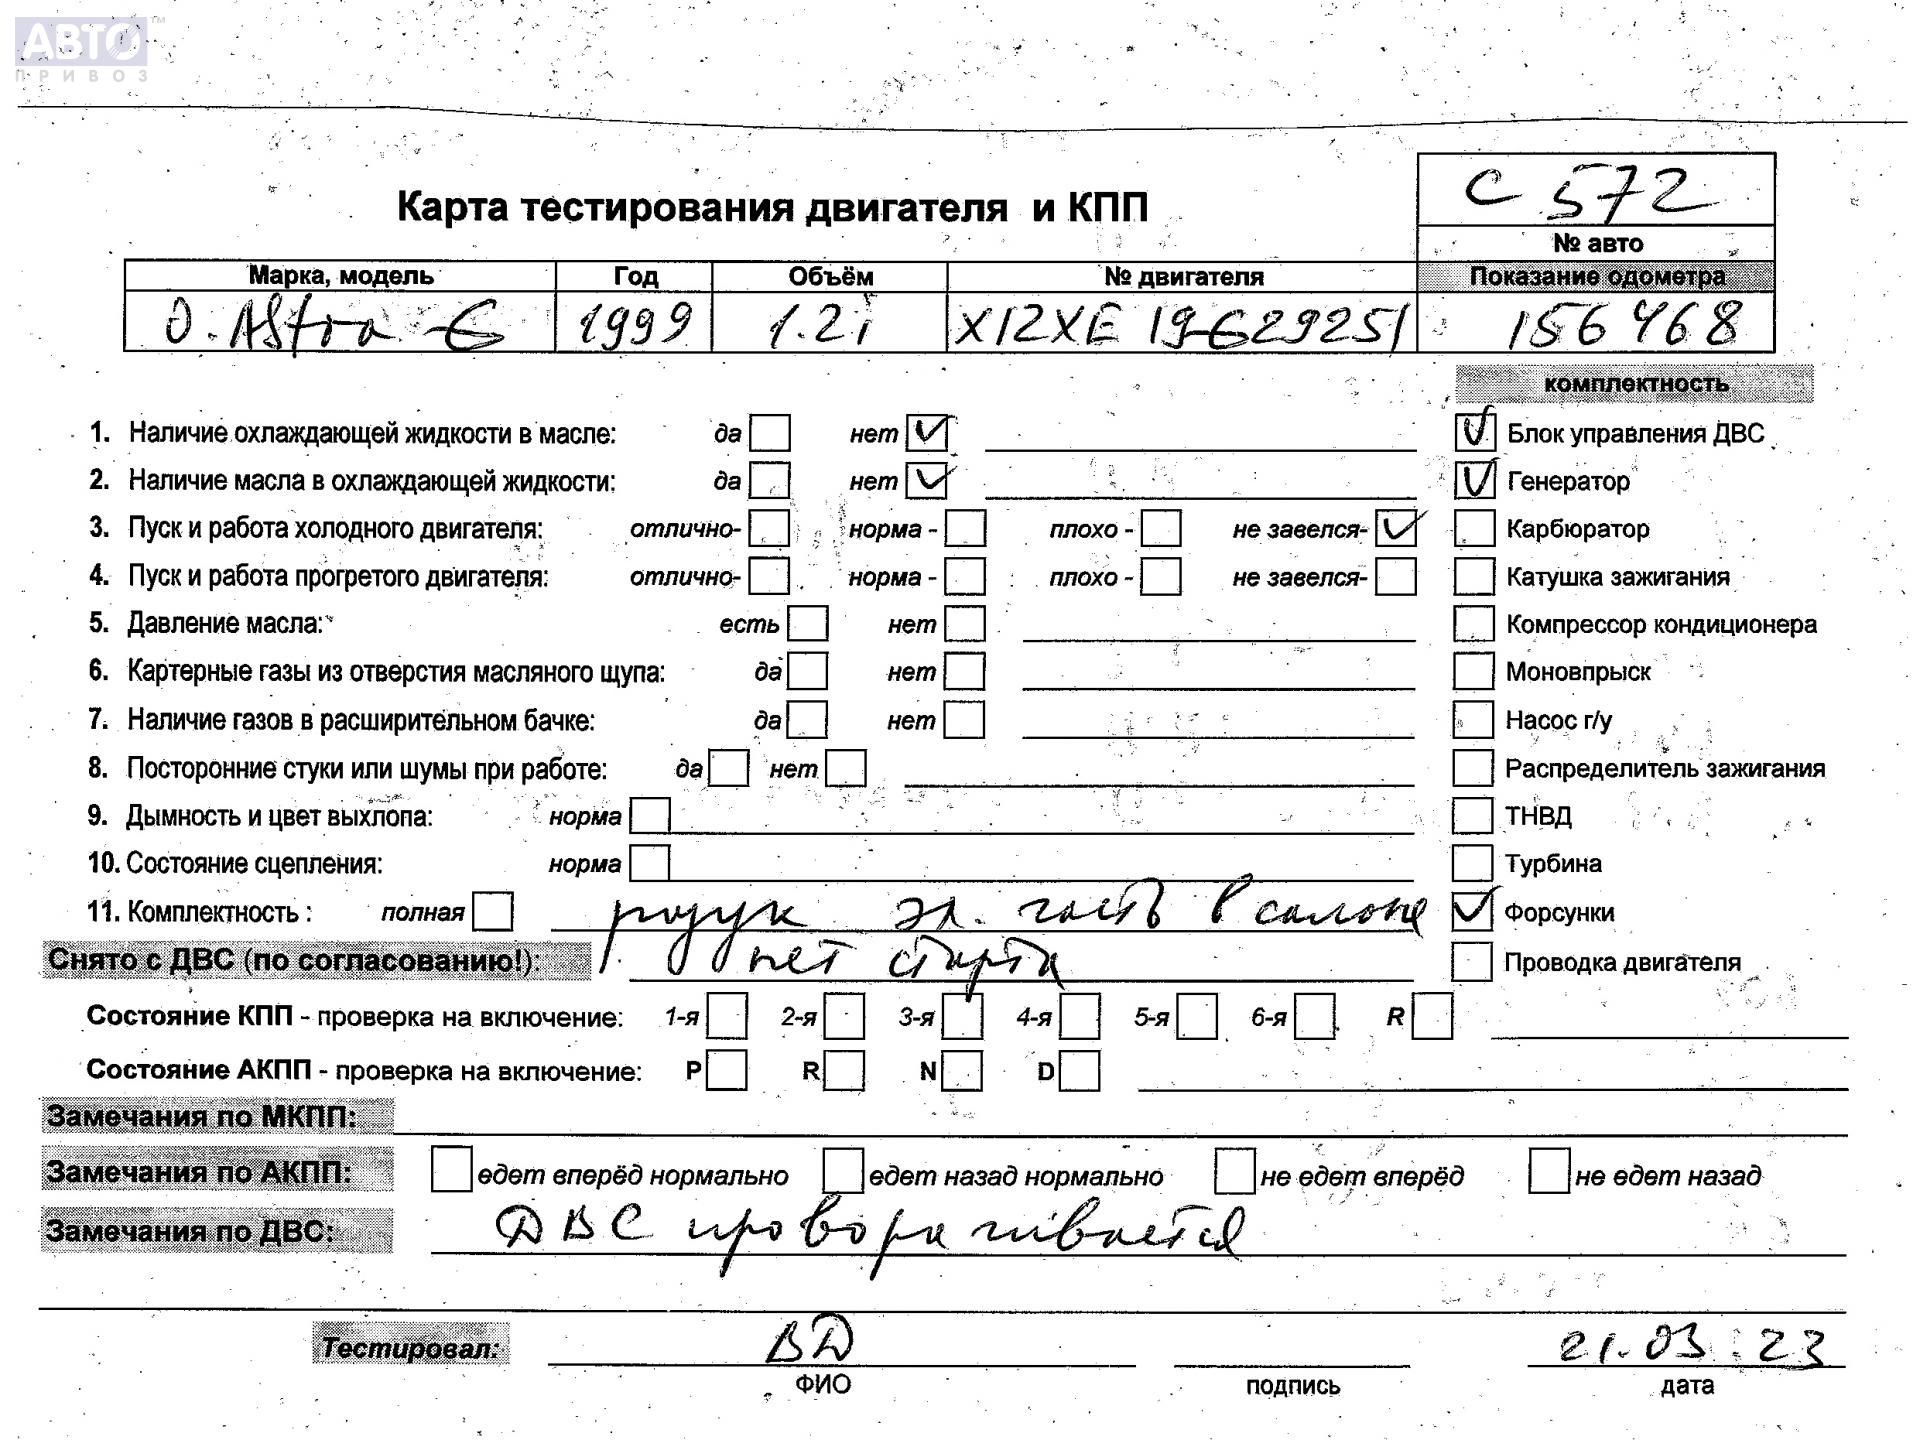 АВТО™
ПРИВОЗ
С 572
Карта тестирования двигателя и КПП
№ авто
Марка, модель Год Объём № двигателя Показание одометра
O. Astra G 1999 1.2i X12XE 19G29251 156468
комплектность
1. Наличие охлаждающей жидкости в масле: да нет Блок управления ДВС
2. Наличие масла в охлаждающей жидкости: да нет Генератор
3. Пуск и работа холодного двигателя: отлично- норма - плохо - не завелся- Карбюратор
4. Пуск и работа прогретого двигателя: отлично- норма - плохо - не завелся- Катушка зажигания
5. Давление масла: есть нет Компрессор кондиционера
6. Картерные газы из отверстия масляного щупа: да нет Моновпрыск
7. Наличие газов в расширительном бачке: да нет Насос г/у
8. Посторонние стуки или шумы при работе: да нет Распределитель зажигания
9. Дымность и цвет выхлопа: норма ТНВД
10. Состояние сцепления: норма Турбина
11. Комплектность : полная эл. часть в салоне Форсунки
Снято с ДВС (по согласованию!): нет старта Проводка двигателя
Состояние КПП - проверка на включение: 1-я 2-я 3-я 4-я 5-я 6-я R
Состояние АКПП - проверка на включение: P R N D
Замечания по МКПП:
Замечания по АКПП: едет вперёд нормально едет назад нормально не едет вперёд не едет назад
Замечания по ДВС: ДВС проворачивается
Тестировал: ВД 21.03.23
ФИО подпись дата